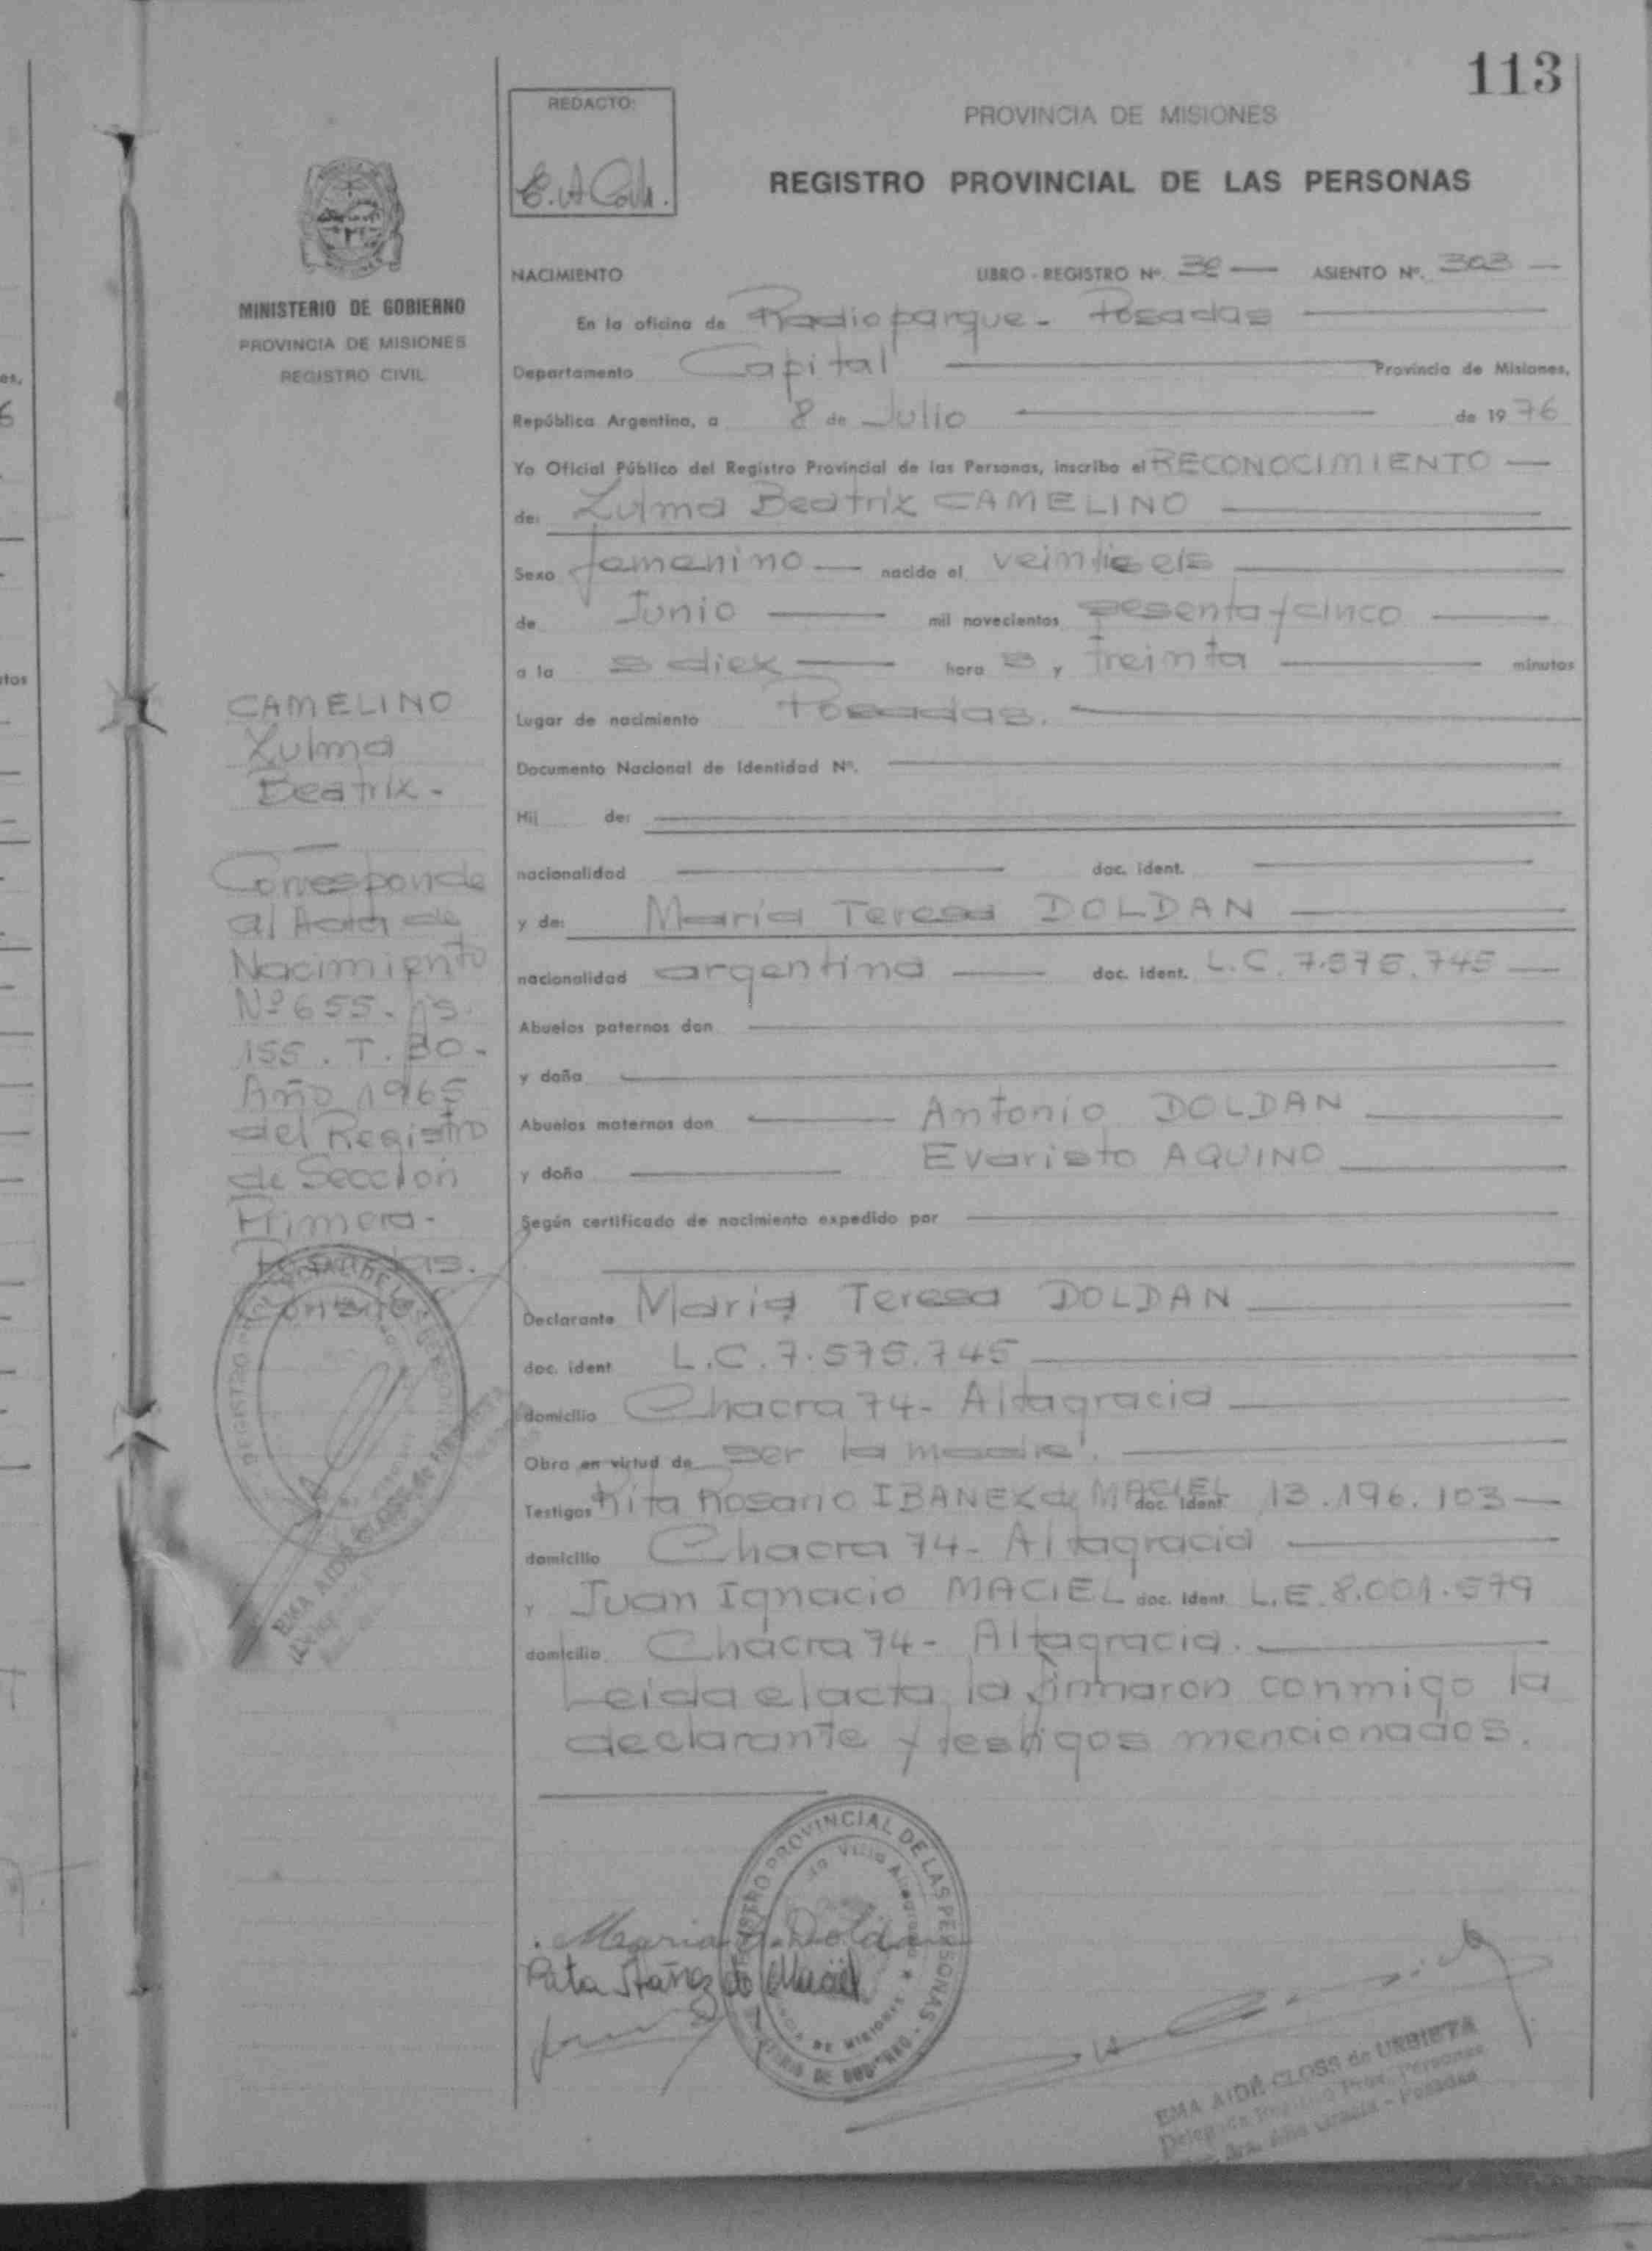 113
REDACTO:
PROVINCIA DE MISIONES
REGISTRO PROVINCIAL DE LAS PERSONAS
MINISTERIO DE GOBIERNO
PROVINCIA DE MISIONES
REGISTRO CIVIL
NACIMIENTO LIBRO - REGISTRO Nº. ASIENTO Nº. 303
En la oficina de Radioparque - Posadas
Departamento Capital Provincia de Misiones,
República Argentina, a 8 de Julio de 1976
Yo Oficial Público del Registro Provincial de las Personas, inscribo el RECONOCIMIENTO
de: Zulma Beatriz CAMELINO
Sexo femenino nacido el veintiseis
de Junio mil novecientos sesenta y cinco
a la s diez hora s y treinta minutos
Lugar de nacimiento Posadas.
Documento Nacional de Identidad Nº.
Hij de:
nacionalidad doc. ident.
y de: María Teresa DOLDAN
nacionalidad argentina doc. ident. L.C. 7.575.745
Abuelos paternos don
y doña
Abuelos maternos don Antonio DOLDAN
y doña Evaristo AQUINO
Según certificado de nacimiento expedido por
Declarante María Teresa DOLDAN
doc. ident L.C. 7.575.745
domicilio Chacra 74- Altagracia
Obra en virtud de ser la madre.
Testigos Rita Rosario IBANEZ de MACIEL doc. ident. 13.196.103
domicilio Chacra 74- Altagracia
y Juan Ignacio MACIEL doc. ident L.E. 8.001.579
domicilio Chacra 74- Altagracia.
Leida el acta, la firmaron conmigo la
declarante y testigos mencionados.
CAMELINO
Zulma
Beatriz -
Corresponde
al Acta de
Nacimiento
Nº 655.
155. T. 30-
Año 1965
del Registro
de Sección
Primera-
Posadas.
EMA AIDÉ CLOSS de URBIETA
Maria T. Doldan
Rita Ibañez de Maciel
REGISTRO PROVINCIAL DE LAS PERSONAS
EMA AIDÉ CLOSS de URBIETA
Posadas